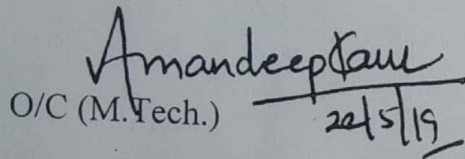 Amandeep Kaur
O/C (M.Tech.)
22/5/19